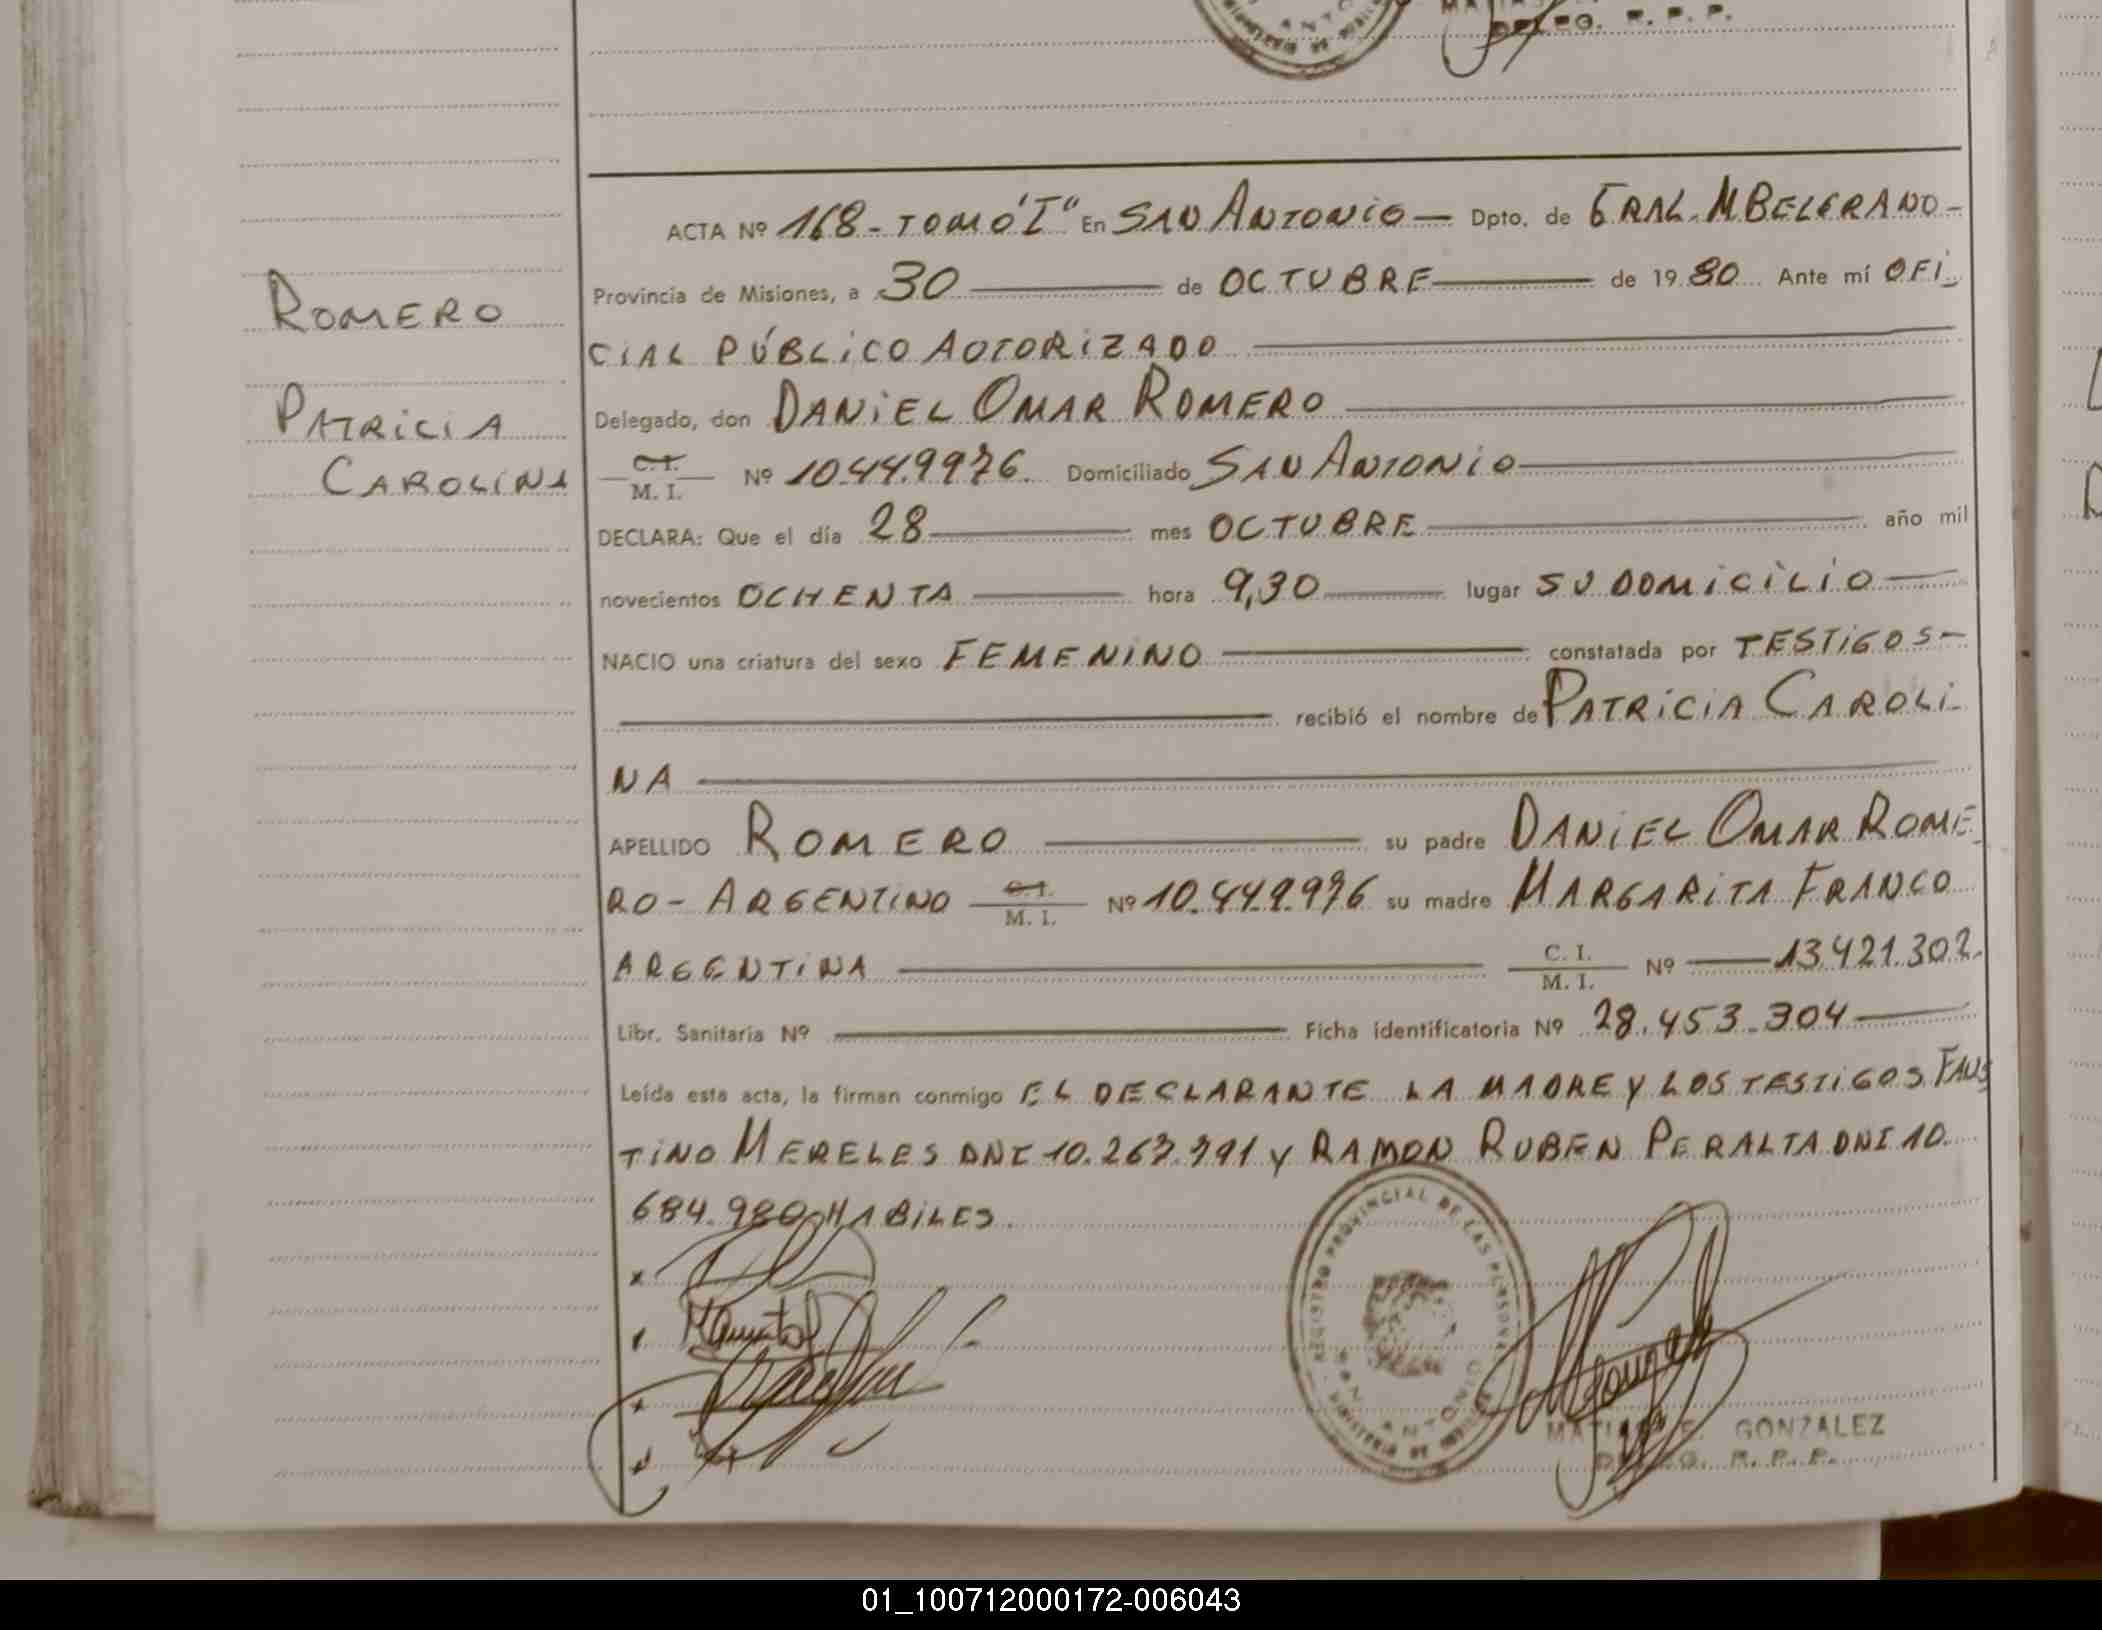 DELEG. R. P. P.
ACTA Nº 168 - TOMO "I" En SAN ANTONIO — Dpto. de GRAL. M BELGRANO -
Provincia de Misiones, a 30 de OCTUBRE de 19 80 Ante mí OFI-
CIAL PÚBLICO AUTORIZADO
Delegado, don DANIEL OMAR ROMERO
C. I. / M. I. Nº 10.449.976. Domiciliado SAN ANTONIO
DECLARA: Que el día 28 mes OCTUBRE año mil
novecientos OCHENTA hora 9,30 lugar SU DOMICILIO
NACIO una criatura del sexo FEMENINO constatada por TESTIGOS -
recibió el nombre de PATRICIA CAROLI-
NA
APELLIDO ROMERO su padre DANIEL OMAR ROME-
RO - ARGENTINO C. I. / M. I. Nº 10.449.976 su madre MARGARITA FRANCO
ARGENTINA C. I. / M. I. Nº 13.421.302.
Libr. Sanitaria Nº Ficha identificatoria Nº 28.453.304
Leída esta acta, la firman conmigo EL DECLARANTE LA MADRE Y LOS TESTIGOS FAUS
TINO MERELES DNI 10.267.791 Y RAMON RUBEN PERALTA DNI 10.
684.980 HABILES.
ROMERO
PATRICIA
CAROLINA
REGISTRO PROVINCIAL DE LAS PERSONAS
SAN ANTONIO
MATIAS E. GONZALEZ
DELEG. R. P. P.
01_100712000172-006043